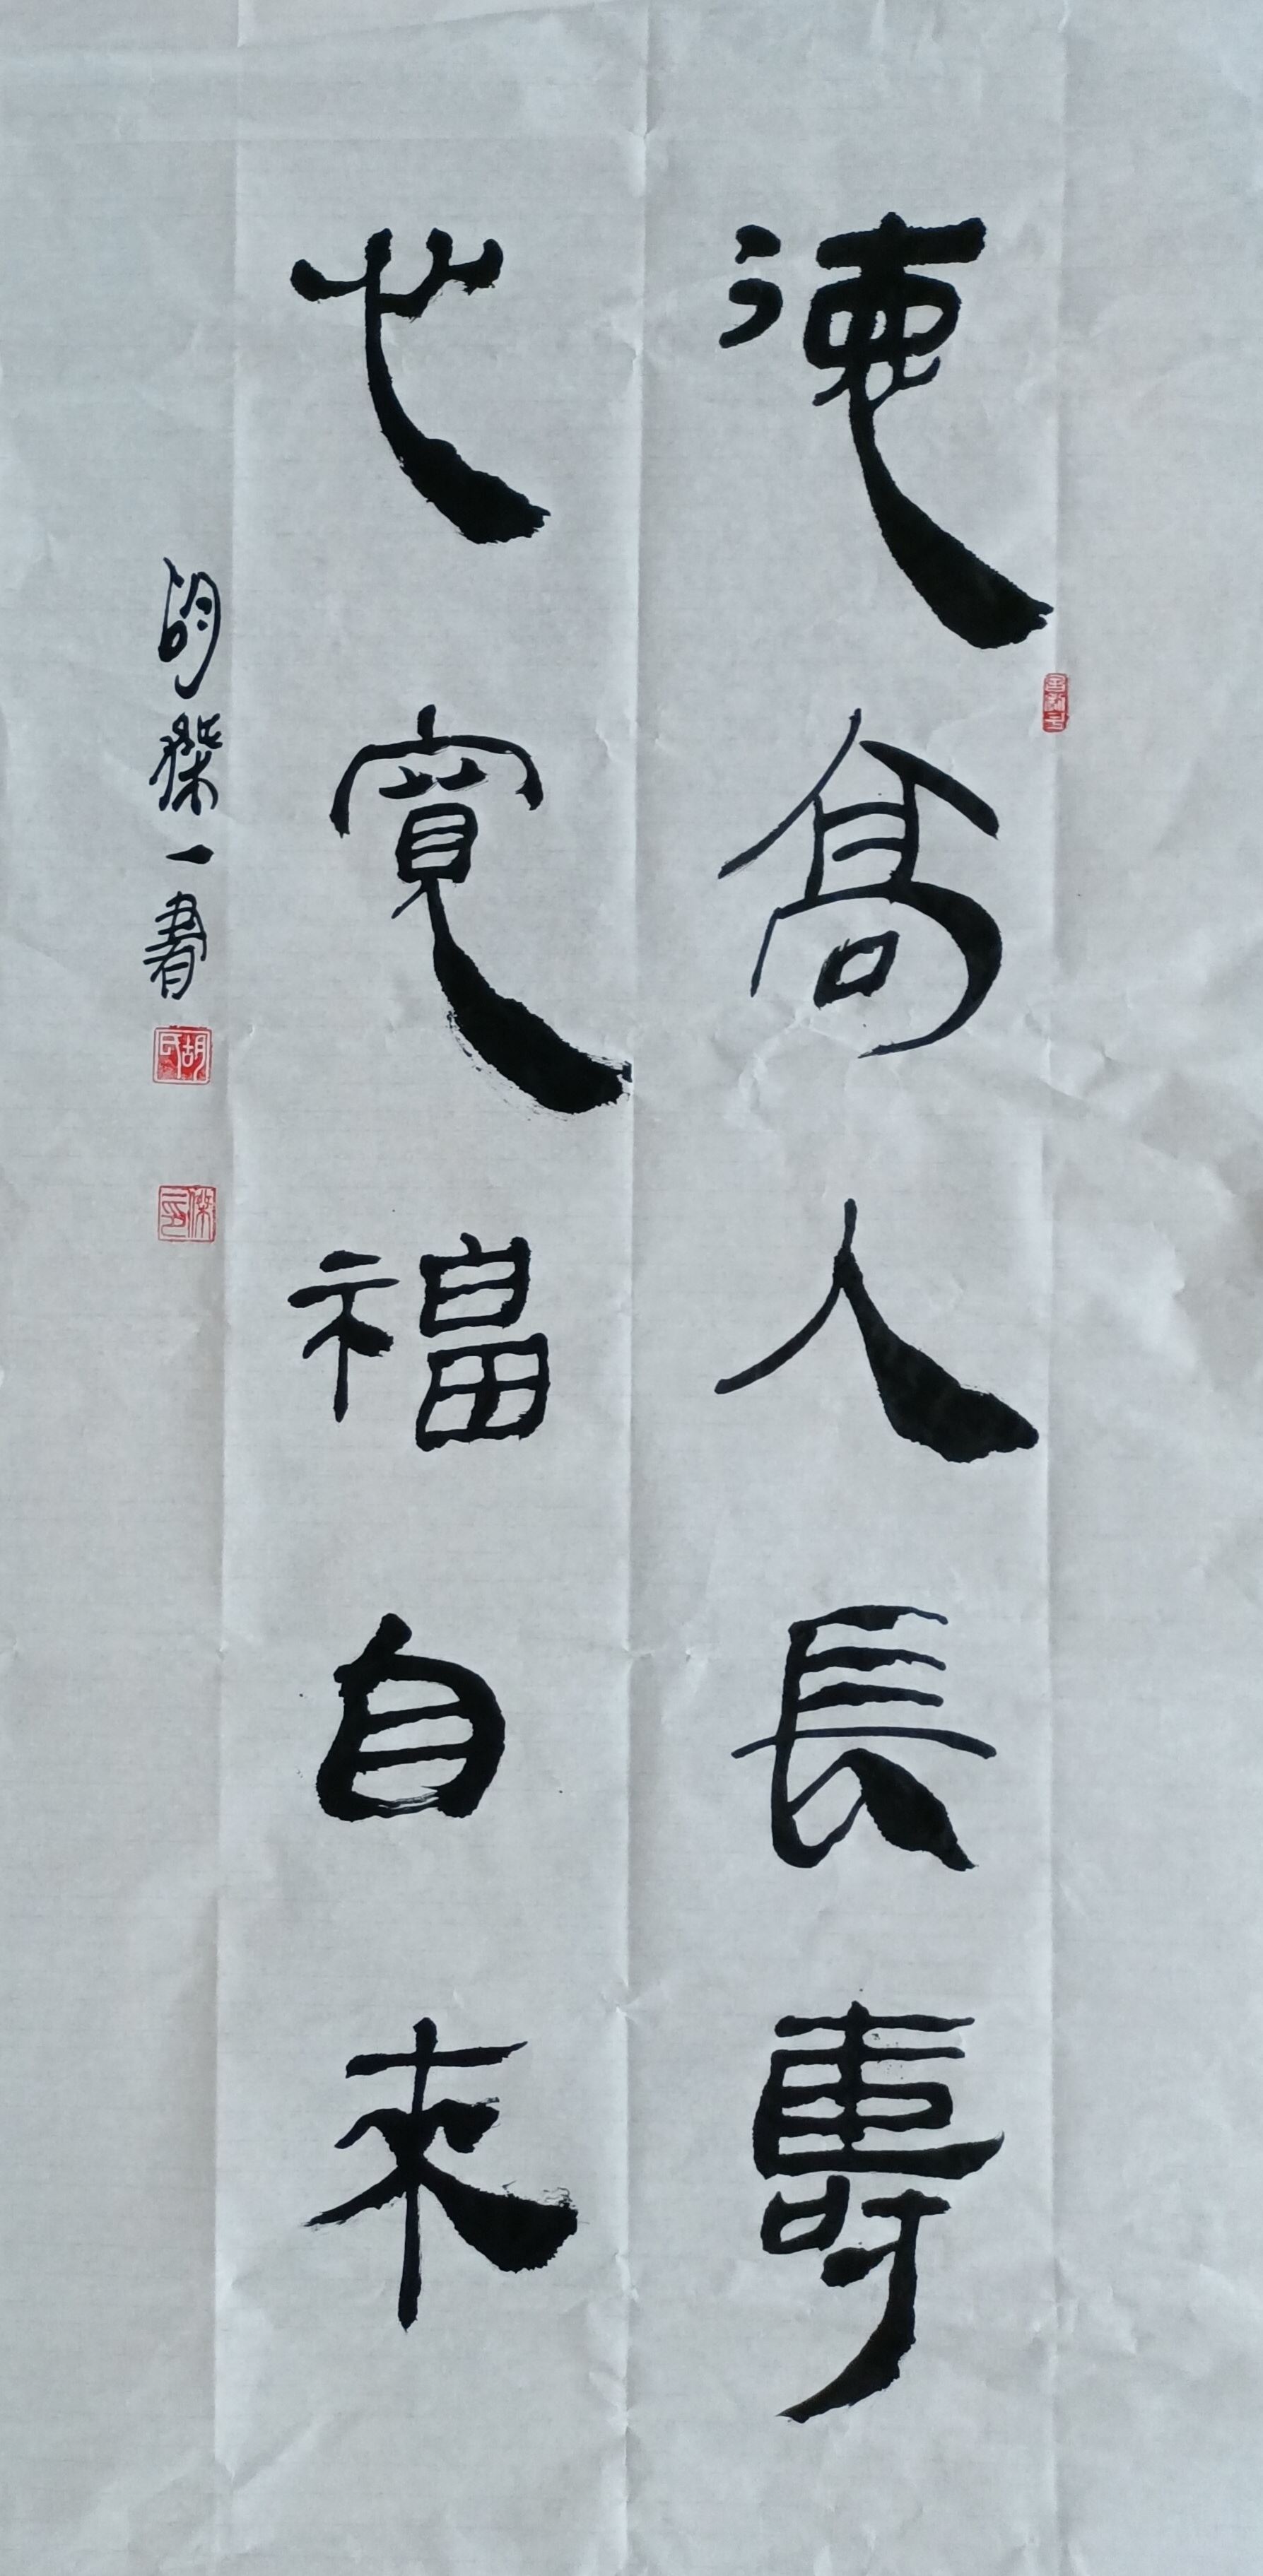 德高人長壽
心寬福自来
胡傑一書
胡氏